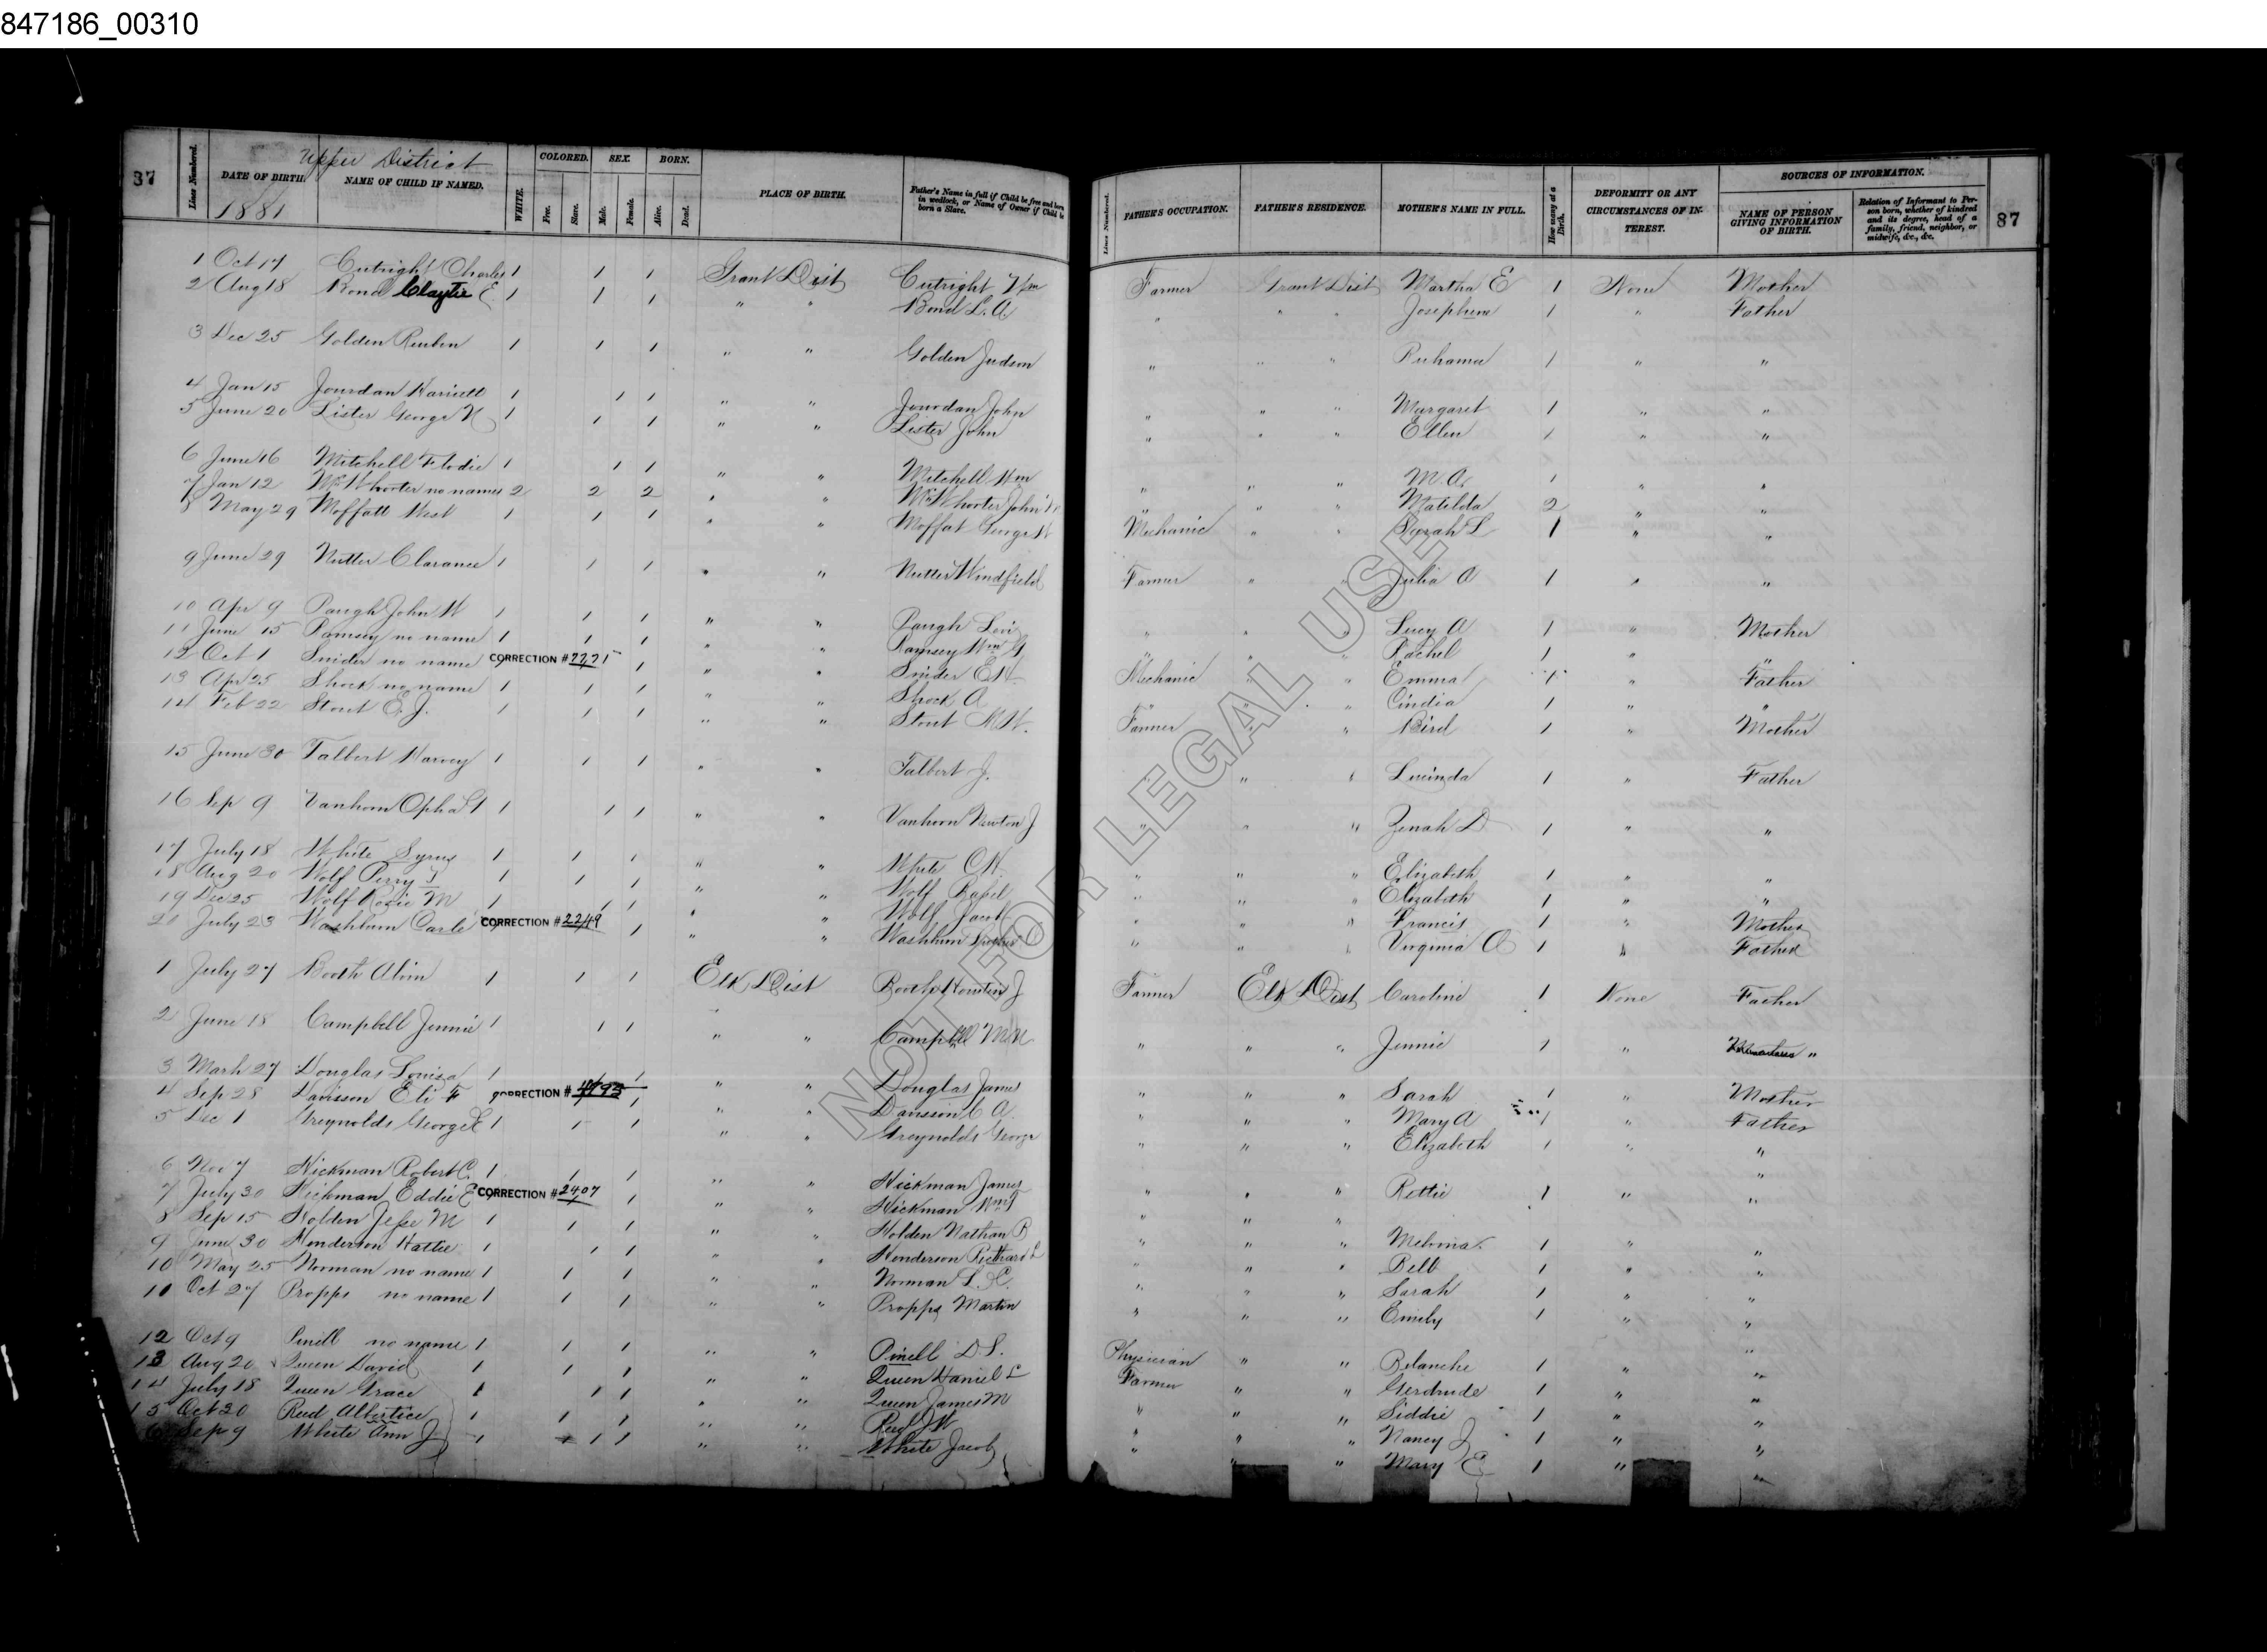 847186_00310
Upper District
87 Lines Numbered. DATE OF BIRTH. NAME OF CHILD IF NAMED. WHITE. COLORED. Free. Slave. SEX. Male. Female. BORN. Alive. Dead. PLACE OF BIRTH. Father's Name in full if Child be free and born in wedlock, or Name of Owner if Child be born a Slave. Lines Numbered. FATHER'S OCCUPATION. FATHER'S RESIDENCE. MOTHER'S NAME IN FULL. How many at a Birth. DEFORMITY OR ANY CIRCUMSTANCES OF INTEREST. SOURCES OF INFORMATION. NAME OF PERSON GIVING INFORMATION OF BIRTH. Relation of Informant to Person born, whether of kindred and its degree, head of a family, friend, neighbor, or midwife, &c., &c. 87
1881
1 Oct 17 Cutright Charles 1 1 1 Grant Dist Cutright Wm Farmer Grant Dist Martha E 1 None Mother
2 Aug 18 Bond Claytie E 1 1 1 " " Bond L. A " " " Josephine 1 " Father
3 Dec 25 Golden Reuben 1 1 1 " " Golden Judson " " " Ruhama 1 " "
4 Jan 15 Jourdan Harriett 1 1 1 " " Jourdan John " " " Margaret 1 " "
5 June 20 Lister George N 1 1 1 " " Lister John " " " Ellen 1 " "
6 June 16 Mitchell Flodie 1 1 1 " " Mitchell Wm " " " M. A. 1 " "
7 Jan 12 McWhorter no names 2 2 2 " " McWhorter John " " " Matilda 2 " "
8 May 29 Moffatt West 1 1 1 " " Moffat George W Mechanic " " Sarah L 1 " "
9 June 29 Nutter Clarance 1 1 1 " " Nutter Windfield Farmer " " Julia A 1 " "
10 Apr 9 Paugh John W 1 1 1 " " Paugh Levi " " " Lucy A 1 " Mother
11 June 15 Ramsey no name 1 1 1 " " Ramsey Wm G " " " Rachel 1 " "
12 Oct 1 Snider no name CORRECTION # 1 " " Snider E H Mechanic " Emma 1 " Father
13 Apr 25 Shock no name 1 1 1 " " Shock A " " " Cindia 1 " "
14 Feb 22 Stout E. J. 1 1 1 " " Stout M W. Farmer " " Bird 1 " Mother
15 June 30 Talbert Harvey 1 1 1 " " Talbert J. " " " Lucinda 1 " Father
16 Sep 9 Vanhorn Opha 1 1 1 " " Vanhorn Newton J " " " Zenah D 1 " "
17 July 18 White Syrus 1 1 1 " " White C H. " " " Elizabeth 1 " "
18 Aug 20 Wolf Perry 1 1 1 " " Wolf " " " Elizabeth 1 " "
19 Dec 25 Wolf Rosie M 1 1 1 " " Wolf Jacob " " " Francis 1 " Mother
20 July 23 Washburn Carle CORRECTION # 2249 1 " " Washburn " " " Virginia A 1 " Father
1 July 27 Booth Alvin 1 1 1 Elk Dist Booth J Farmer Elk Dist Caroline 1 None Father
2 June 18 Campbell Jennie 1 1 1 " " Campbell M " " " Jennie 1 " "
3 Mark 27 Douglas Louisa 1 1 1 " " Douglas James " " " Sarah 1 " Mother
4 Sep 28 Davisson Eli F CORRECTION # 1 " " Davisson C A " " " Mary A 1 " Father
5 Dec 1 Greynolds George 1 1 1 " " Greynolds George " " " Elizabeth 1 " "
6 Nov 7 Hickman Robert C. 1 1 1 " " Hickman James " " " Rettie 1 " "
7 July 30 Hickman Eddie E CORRECTION # 2407 1 " " Hickman Wm " " "
8 Sep 15 Holden Jesse M 1 1 1 " " Holden Nathan B " " " 1 " "
9 June 30 Henderson Hattie 1 1 1 " " Henderson Richard L " " " Bell 1 " "
10 May 25 Norman no name 1 1 1 " " Norman L. " " " Sarah 1 " "
10 Oct 27 Propps no name 1 1 1 " " Propps Martin " " " Emily 1 " "
12 Oct 9 Pinell no name 1 1 1 " " Pinell D S. Physician " " Blanche 1 " "
13 Aug 20 Queen David 1 1 1 " " Queen Daniel L Farmer " " Gerdrude 1 " "
14 July 18 Queen Grace 1 1 1 " " Queen James M " " " Siddie 1 " "
15 Oct 20 Reed Albertice 1 1 1 " " Reed J W " " " Nancy J 1 " "
6 Sep 9 White Ann J 1 1 1 " " White Jacob " " Mary E 1 " "
NOT FOR LEGAL USE